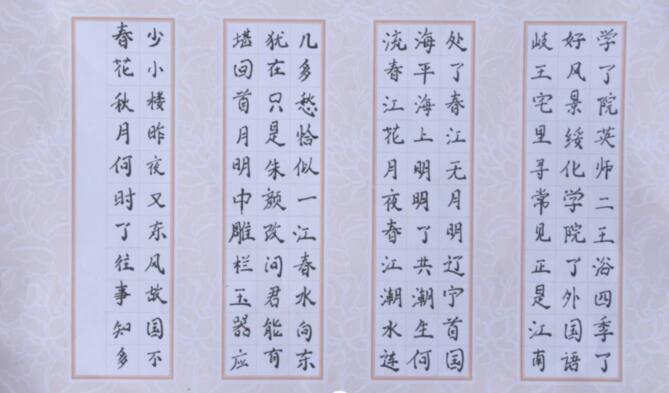 春花秋月何时了往事知多
少小楼昨夜又东风故国不
堪回首月明中雕栏玉器应
犹在只是朱颜改问君能有
几多愁恰似一江春水向东
流春江花月夜春江潮水连
海平海上明明了共潮生何
处了春江无月明辽宁首国
岐王宅里寻常见正是江南
好风景绥化学院了外国语
学了院英师二王浴四季了